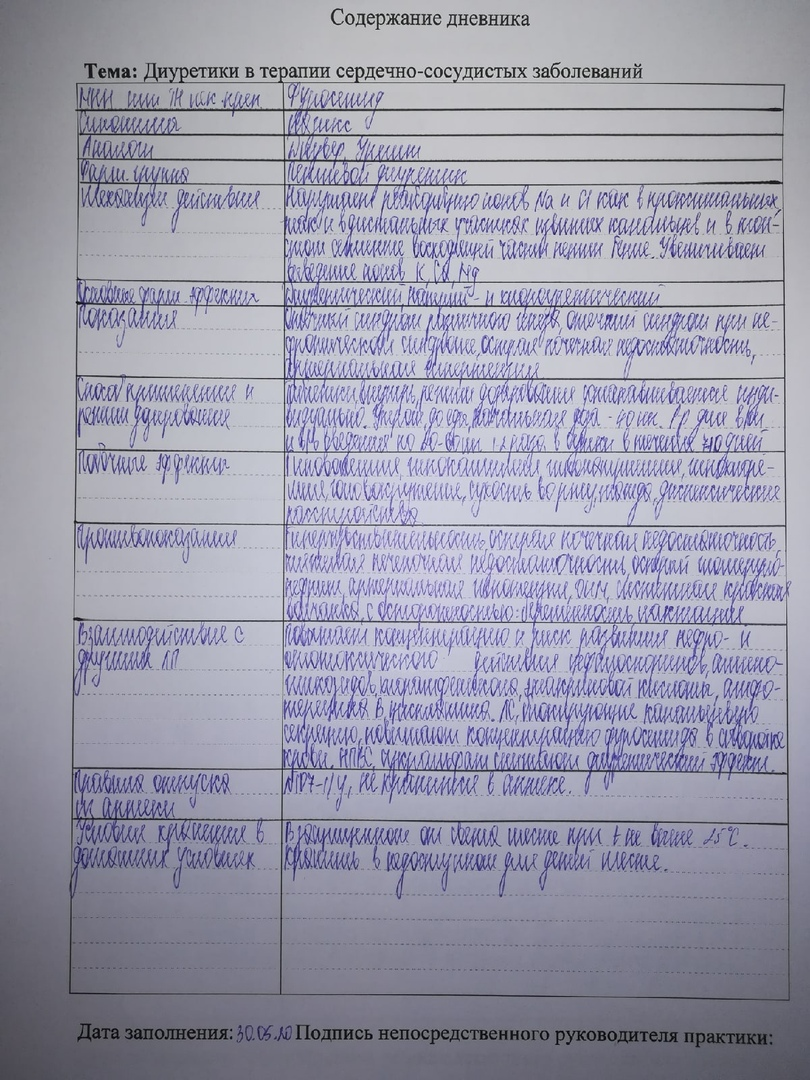 Содержание дневника
Тема: Диуретики в терапии сердечно-сосудистых заболеваний
МНН или ТН лек. преп. Фуросемид
Синонимы Лазикс
Аналоги Диувер,
Фарм. группа Петлевой диуретик
Механизм действия Нарушает реабсорбцию ионов Na и Cl как в проксимальных,
так и в дистальных участках извитых канальцев и в тол-
стом сегменте восходящей части петли Генле. Увеличивает
выведение ионов K, Ca, Mg
Основные фарм. эффекты Диуретический, натрий- и хлоруретический
Показания Отечный синдром различного генеза, отечный синдром при не-
фротическом синдроме, острая почечная недостаточность,
артериальная гипертензия
Способ применения и Таблетки внутрь, режим дозирования устанавливается инди-
режим дозирования видуально. Внутрь, до еды, начальная доза - 40 мг 1 р/день в/м
и в/в введения по 20-60 мг 1-2 раза в сутки в течение 7-10 дней
Побочные эффекты Гиповолемия, гипокалиемия, гипонатриемия,
головокружение, сухость во рту, жажда, диспепсические
расстройства
Противопоказания Гиперчувствительность, острая почечная недостаточность
тяжелая печеночная недостаточность, острый гломеруло-
нефрит, артериальная гипотензия, системная красная
волчанка, с осторожностью: беременность, лактация
Взаимодействие с Повышает концентрацию и риск развития нефро- и
другими ЛП ототоксического действия цефалоспоринов, амино-
гликозидов, хлорамфеникола, этакриновой кислоты, амфо-
терицина В, цисплатина. ЛС, блокирующие канальцевую
секрецию, повышают концентрацию фуросемида в сыворотке
крови. НПВС, сукральфат снижают диуретический эффект.
Правила отпуска №107-1/у, не хранится в аптеке.
из аптеки
Условия хранения в В защищенном от света месте при t не выше 25°C.
домашних условиях Хранить в недоступном для детей месте.
Дата заполнения: 30.05.20 Подпись непосредственного руководителя практики: